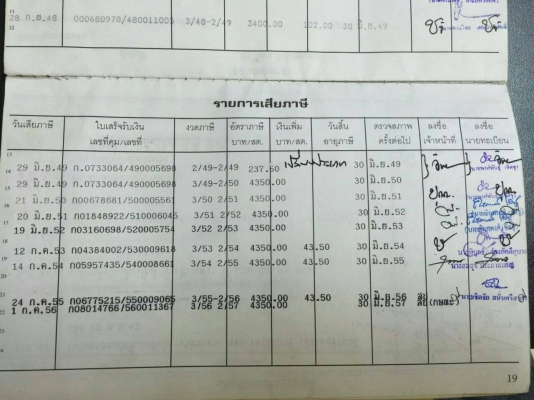 28 ก.ย.48 000680978/480011005 3/48-2/49 3400.00 102.00 30 มิ.ย.49
รายการเสียภาษี
วันเสียภาษี ใบเสร็จรับเงิน งวดภาษี อัตราภาษี เงินเพิ่ม วันสิ้น ตรวจสภาพ ลงชื่อ ลงชื่อ
เลขที่คุม/เลขที่ บาท/สต. บาท/สต. อายุภาษี ครั้งต่อไป เจ้าหน้าที่ นายทะเบียน
29 มิ.ย.49 ก.0733064/490005698 2/49-2/49 237.50 30 มิ.ย.49
29 มิ.ย.49 ก.0733064/490005698 3/49-2/50 4350.00 30 มิ.ย.50
21 มิ.ย.50 ก00678681/500005561 3/50 2/51 4350.00 30 มิ.ย.51
20 มิ.ย.51 ก01848922/510006045 3/51 2/52 4350.00 30 มิ.ย.52
19 มิ.ย.52 ก03160698/520005754 3/52 2/53 4350.00 30 มิ.ย.53
12 ก.ค.53 ก04384002/530009618 3/53 2/54 4350.00 43.50 30 มิ.ย.54
14 ก.ค.54 ก05957435/540008661 3/54 2/55 4350.00 43.50 30 มิ.ย.55
24 ก.ค.55 ก06775215/550009065 3/55-2/56 4350.00 43.50 30 มิ.ย.56
1 ก.ค.56 ก08014766/560011367 3/56 2/57 4350.00 30 มิ.ย.57
19